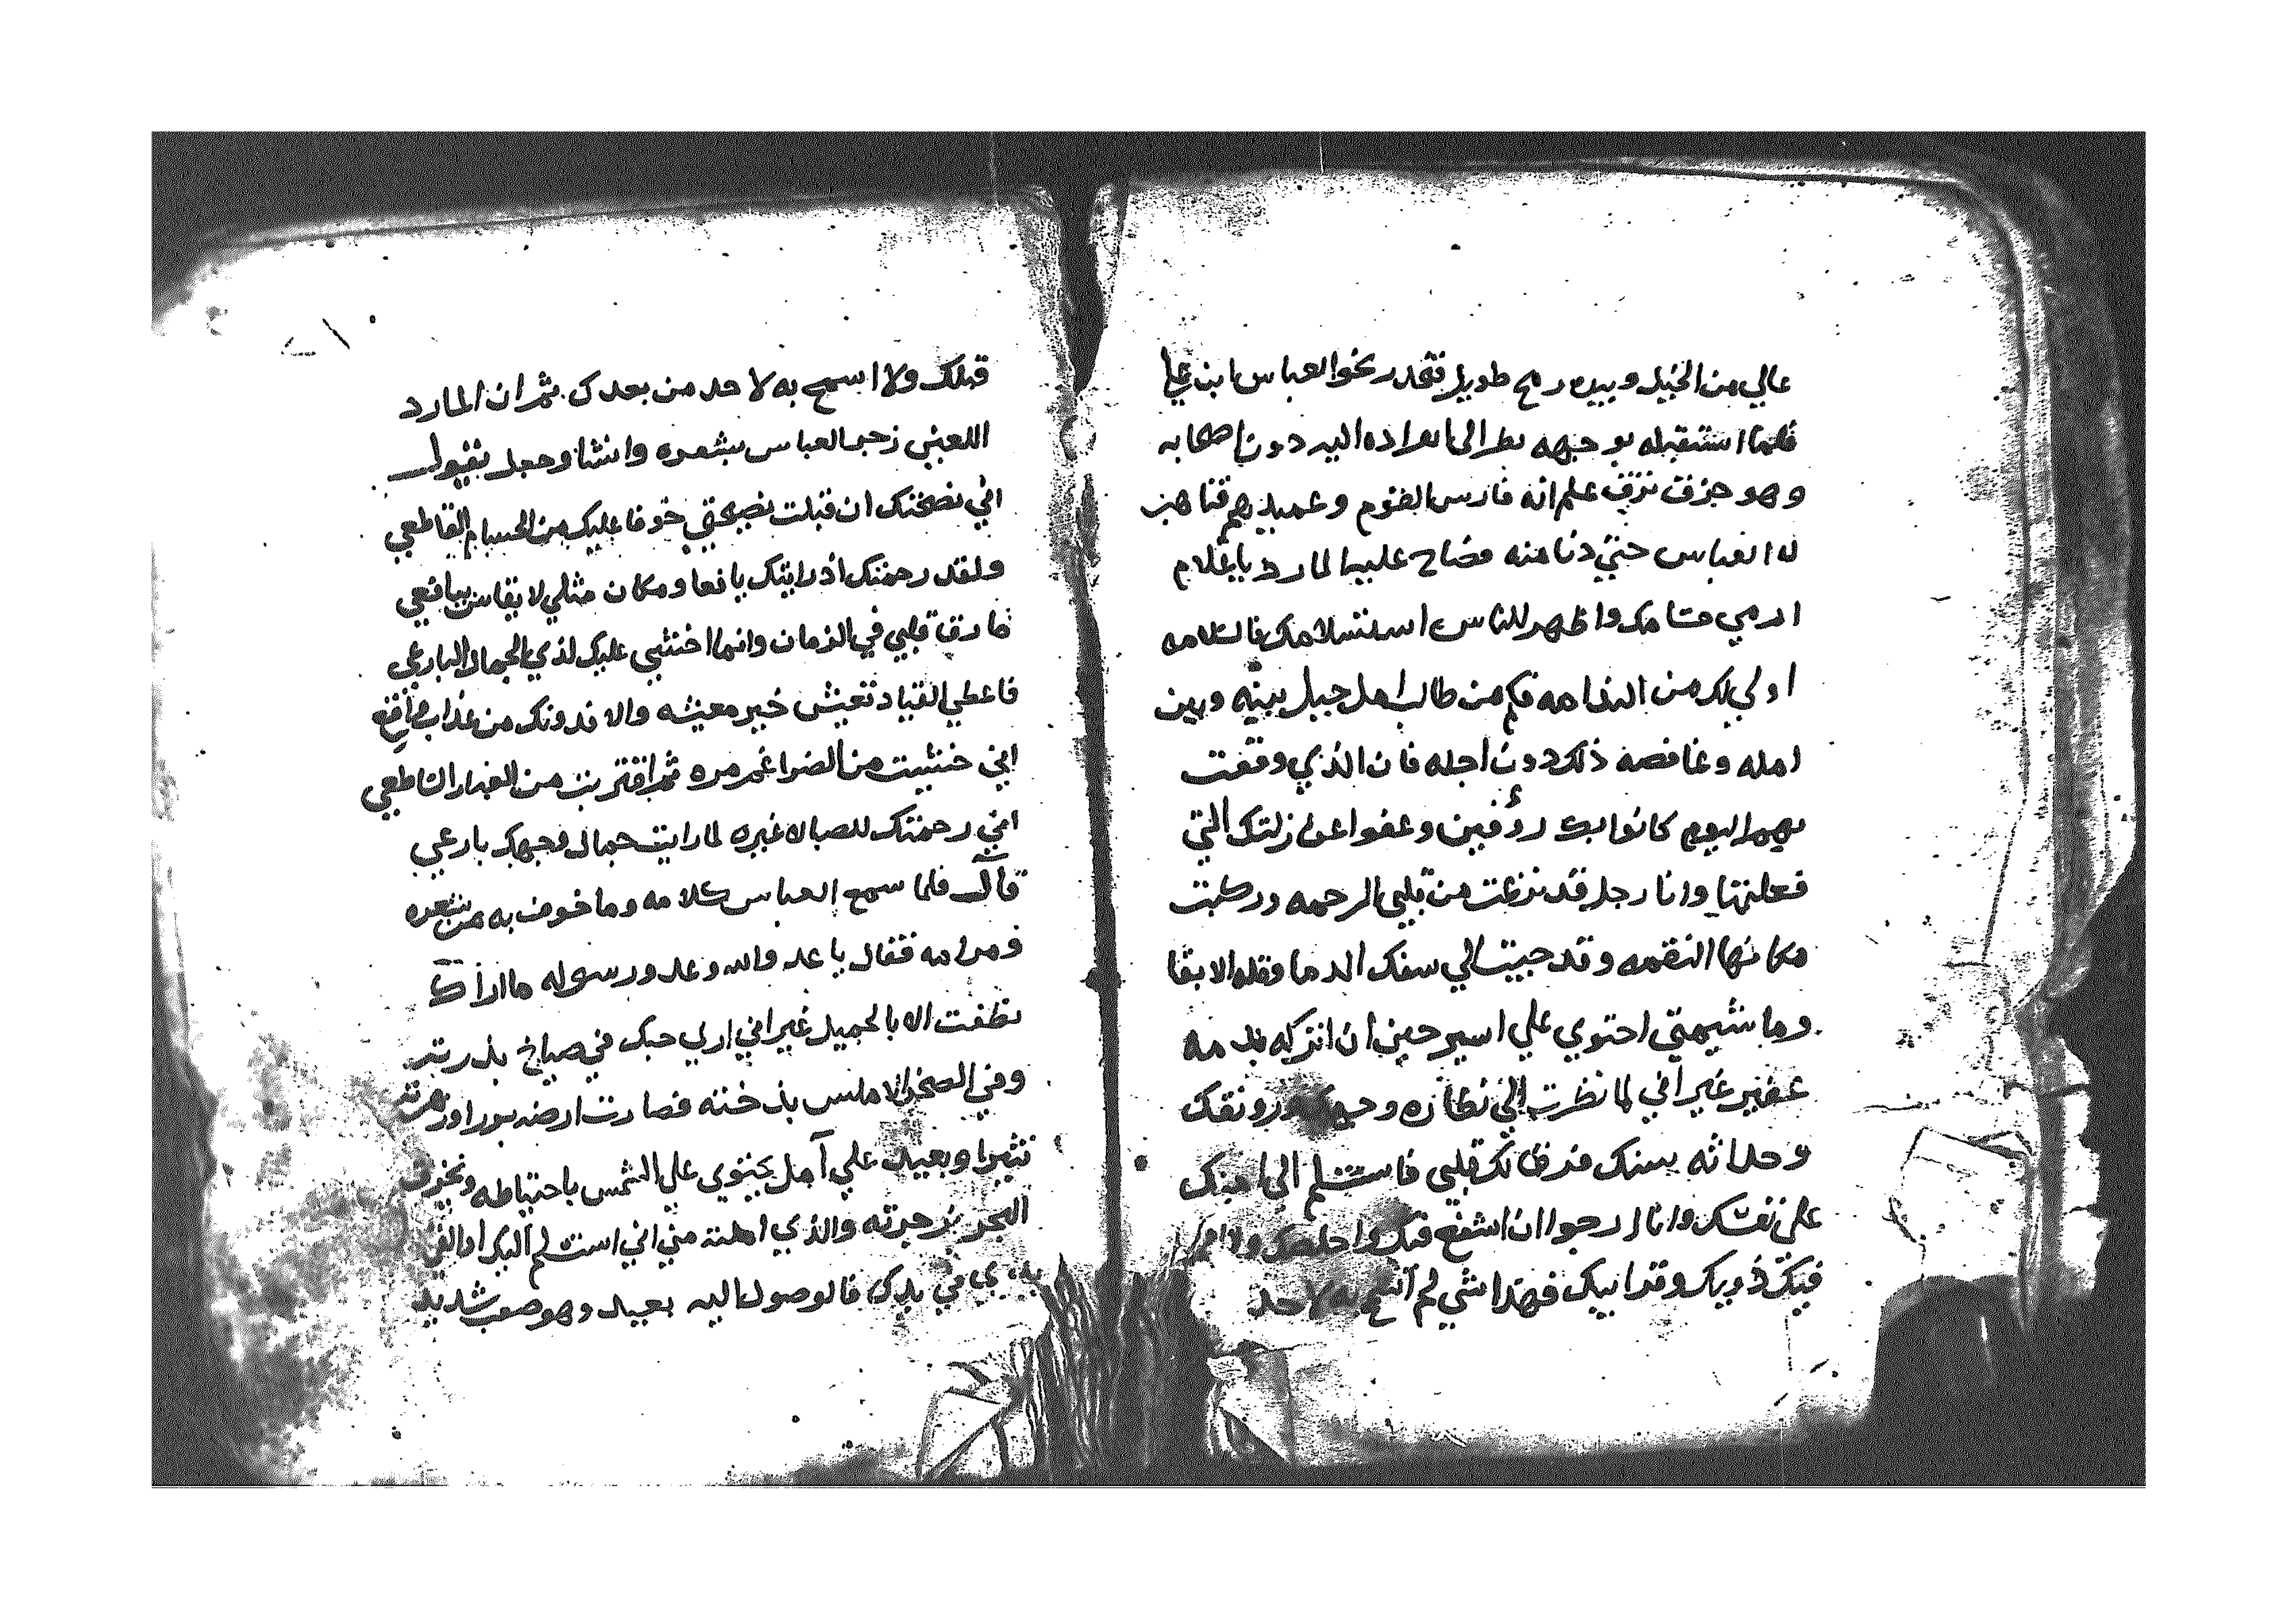 عالي من الخيل وبيده رمح طويل تقدر نحو العباس ابن علي
فلما استقبله بوجهه نظر الى انفراده اليه دون اصحابه
وهو علم انه فارس القوم وعميدهم فتاهب
له العباس حتي دنا منه فصاح عليه المارد يا غلام
ارمي حسامك واظهر للناس استسلامك فالسلامه
اولي لك من الندامه فكم من طالب امل حيل بينه وبين
امله وغافصه ذلك دون اجله فان الذي وقفت
بهم اليوم كانوا بك رؤفين وعفوا عن زلتك التي
فعلتها وانا رجل قد نزعت من قلبي الرحمه وركبت
مكانها النقمه وقد حببت الي سفك الدما وقله الابقا
وما شيمتي احتوي علي اسير حين ان اتركه بدمه
عفير غير اني لما نظرت الي ورونقك
وحداثه سنك فرق لك قلبي فاستسلم الي امنك
علي نفسك وانا ارجوا ان اشفع فيك واخلصك
فيك ذويك وقرابيك فهذا شي لم اسمح به لاحد
قبلك ولا اسمح به لاحد من بعدك ثم ان المارد
اللعين زجر العباس بشعره وانشا وجعل يقول
اني نصحتك ان قبلت نصيحتي خوفا عليك من الحسام القاطعي
ولقد رحمتك اذ رايتك يافعا ومكان مثلي لا يقاس بيافعي
ما رق قلبي في الزمان وانما اخشي عليك لذي الجمال البارعي
فاعطي القياد تعيش خير معيشه والا فدونك من عذاب واقع
اني خشيت من الضراغم مره ثم اقتربت من الغبار الساطعي
اني رحمتك للصبا لا غيره لما رايت جمال وجهك بارعي
قال فلما سمع العباس كلامه وما خوف به من شعره
ومرامه فقال يا عدو الله وعدو رسوله ما اراك
نطقت الا بالجميل غير اني اري حبك في صباخ بذرته
وفي الصخر الاملس بذخته فصارت ارضه بورا
وبعيد علي آمل يحتوي علي الشمس باحتياطه
البحر والذي املته مني اني استسلم اليك او القي
يدي في يدك فالوصول اليه بعيد وهو صعب شديد